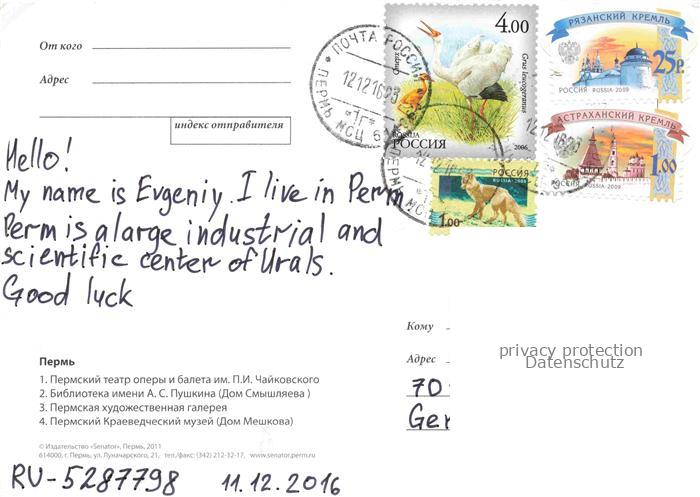 От кого
Адрес
индекс отправителя
ПОЧТА РОССИИ
12121623
*1г*
ПЕРМЬ МСЦ 6
4.00
Grus leucogeranus
Стерх
ROSSIJA
РОССИЯ
2006
РЯЗАНСКИЙ КРЕМЛЬ
25р.
РОССИЯ RUSSIA·2009
АСТРАХАНСКИЙ КРЕМЛЬ
1.00
РОССИЯ RUSSIA·2009
РОССИЯ
RUSSIA·2008
1.00
Hello!
My name is Evgeniy. I live in Perm
Perm is a large industrial and
scientific center of Urals.
Good luck
Кому
Адрес
privacy protection
Datenschutz
70
Ger
Пермь
1. Пермский театр оперы и балета им. П.И. Чайковского
2. Библиотека имени А. С. Пушкина (Дом Смышляева )
3. Пермская художественная галерея
4. Пермский Краеведческий музей (Дом Мешкова)
© Издательство «Senator», Пермь, 2011
614000, г. Пермь, ул. Луначарского, 21, тел./факс: (342) 212-32-17, www.senator.perm.ru
RU-5287798 11.12.2016